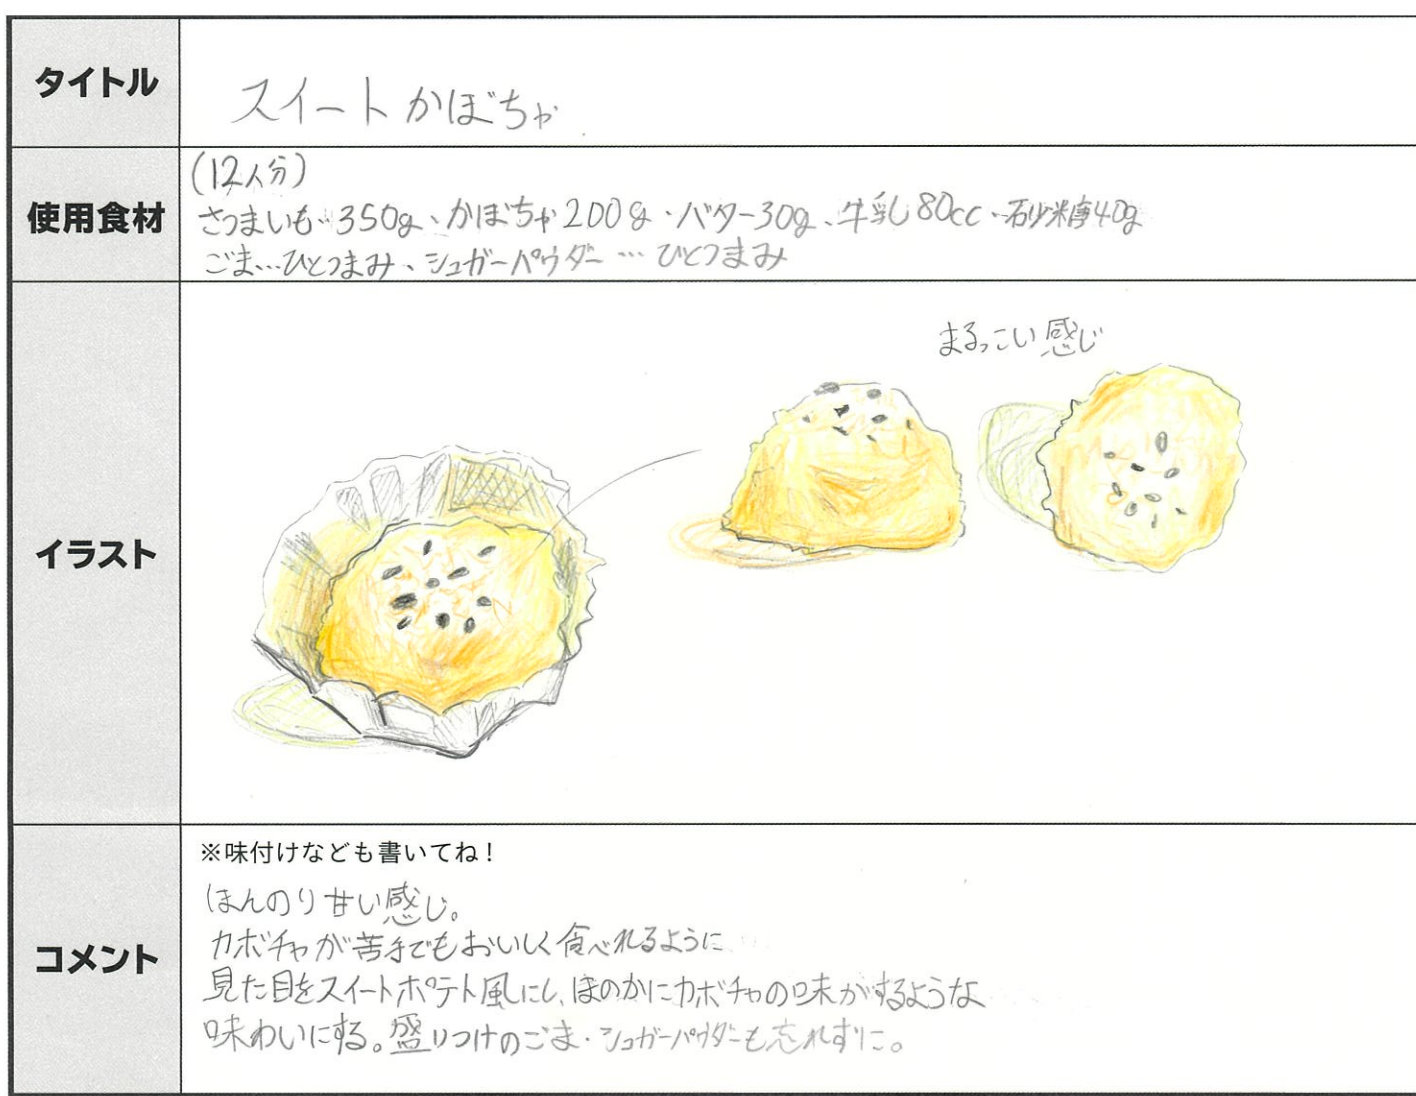 タイトル
スイートかぼちゃ
使用食材
(12人分)
さつまいも…350g、かぼちゃ200g・バター30g、牛乳80cc、砂糖40g
ごま…ひとつまみ、シュガーパウダー…ひとつまみ
イラスト
まるっこい感じ
コメント
※味付けなども書いてね！
ほんのり甘い感じ。
カボチャが苦手でもおいしく食べれるように
見た目をスイートポテト風にし、ほのかにカボチャの味がするような
味わいにする。盛りつけのごま・シュガーパウダーも忘れずに。